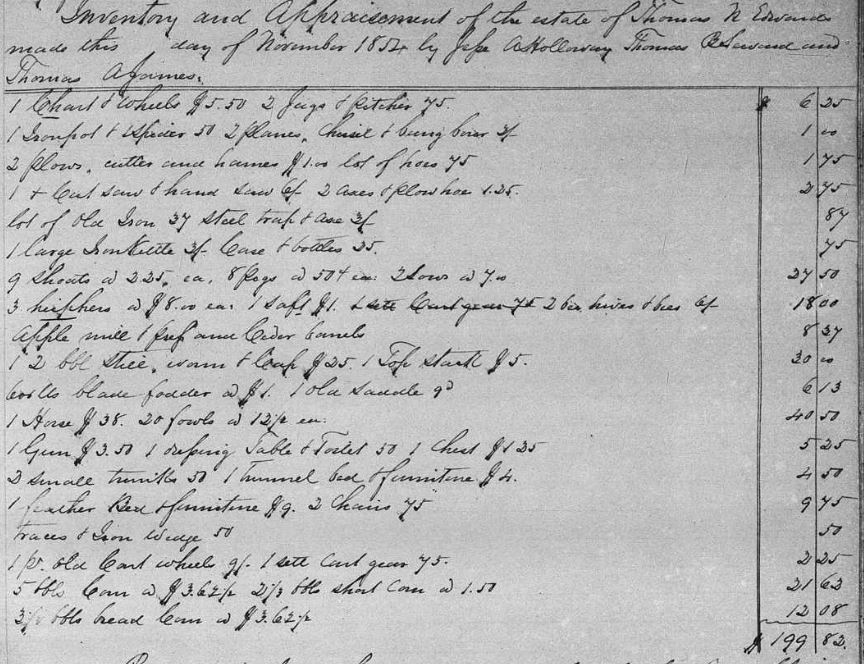 Inventory and Appraisement of the estate of Thomas N Edwards
made this day of November 1854 by Jesse A Holloway Thomas and
Thomas A James.
1 Chart & wheels $5.50 2 Jugs & pitcher 75. $ 6 25
1 Iron pot & spider 50 2 planes, chisel & bung borer 3/ 1 00
2 plows, cutter and hames $1.00 lot of hoes 75 1 75
1 + Cut saw & hand saw 2 axes & plow hoe 1.25. 2 75
lot of old Iron 37 steel trap & axe 3/ 87
1 large Iron Kettle 3/ Case & bottles 25. 75
9 shoats a 2.25, ea, 8 pigs a 50 ea. 2 Sows a 7.00 27 50
3 heifhers a $8.00 ea. 1 $1. 1 sett Cart gear 75 2 bee hives & bees 6/ 18 00
Apple mill & and Cider barrels 8 37
1 2 bbl still, worm & Cap $25. 1 Top $5. 30 00
600 lbs blade fodder a $1. 1 old saddle 9d 6 13
1 Horse $38. 20 fowls a 12½ ea. 40 50
1 Gun $3.50 1 dressing Table & Toilet 50 1 Chest $1 25 5 25
2 small trunks 50 1 Trunnel bed & furniture $4. 4 50
1 feather Bed & furniture $9. 2 Chairs 75 9 75
traces & Iron wedge 50 50
1 pr. old Cart wheels 9/. 1 sett Cart gear 75. 2 25
5 bbls Corn a $3.62½ 2⅓ bbls short Corn a 1.50 21 62
bbls bread Corn a $3.62½ 12 08
$ 199 82.